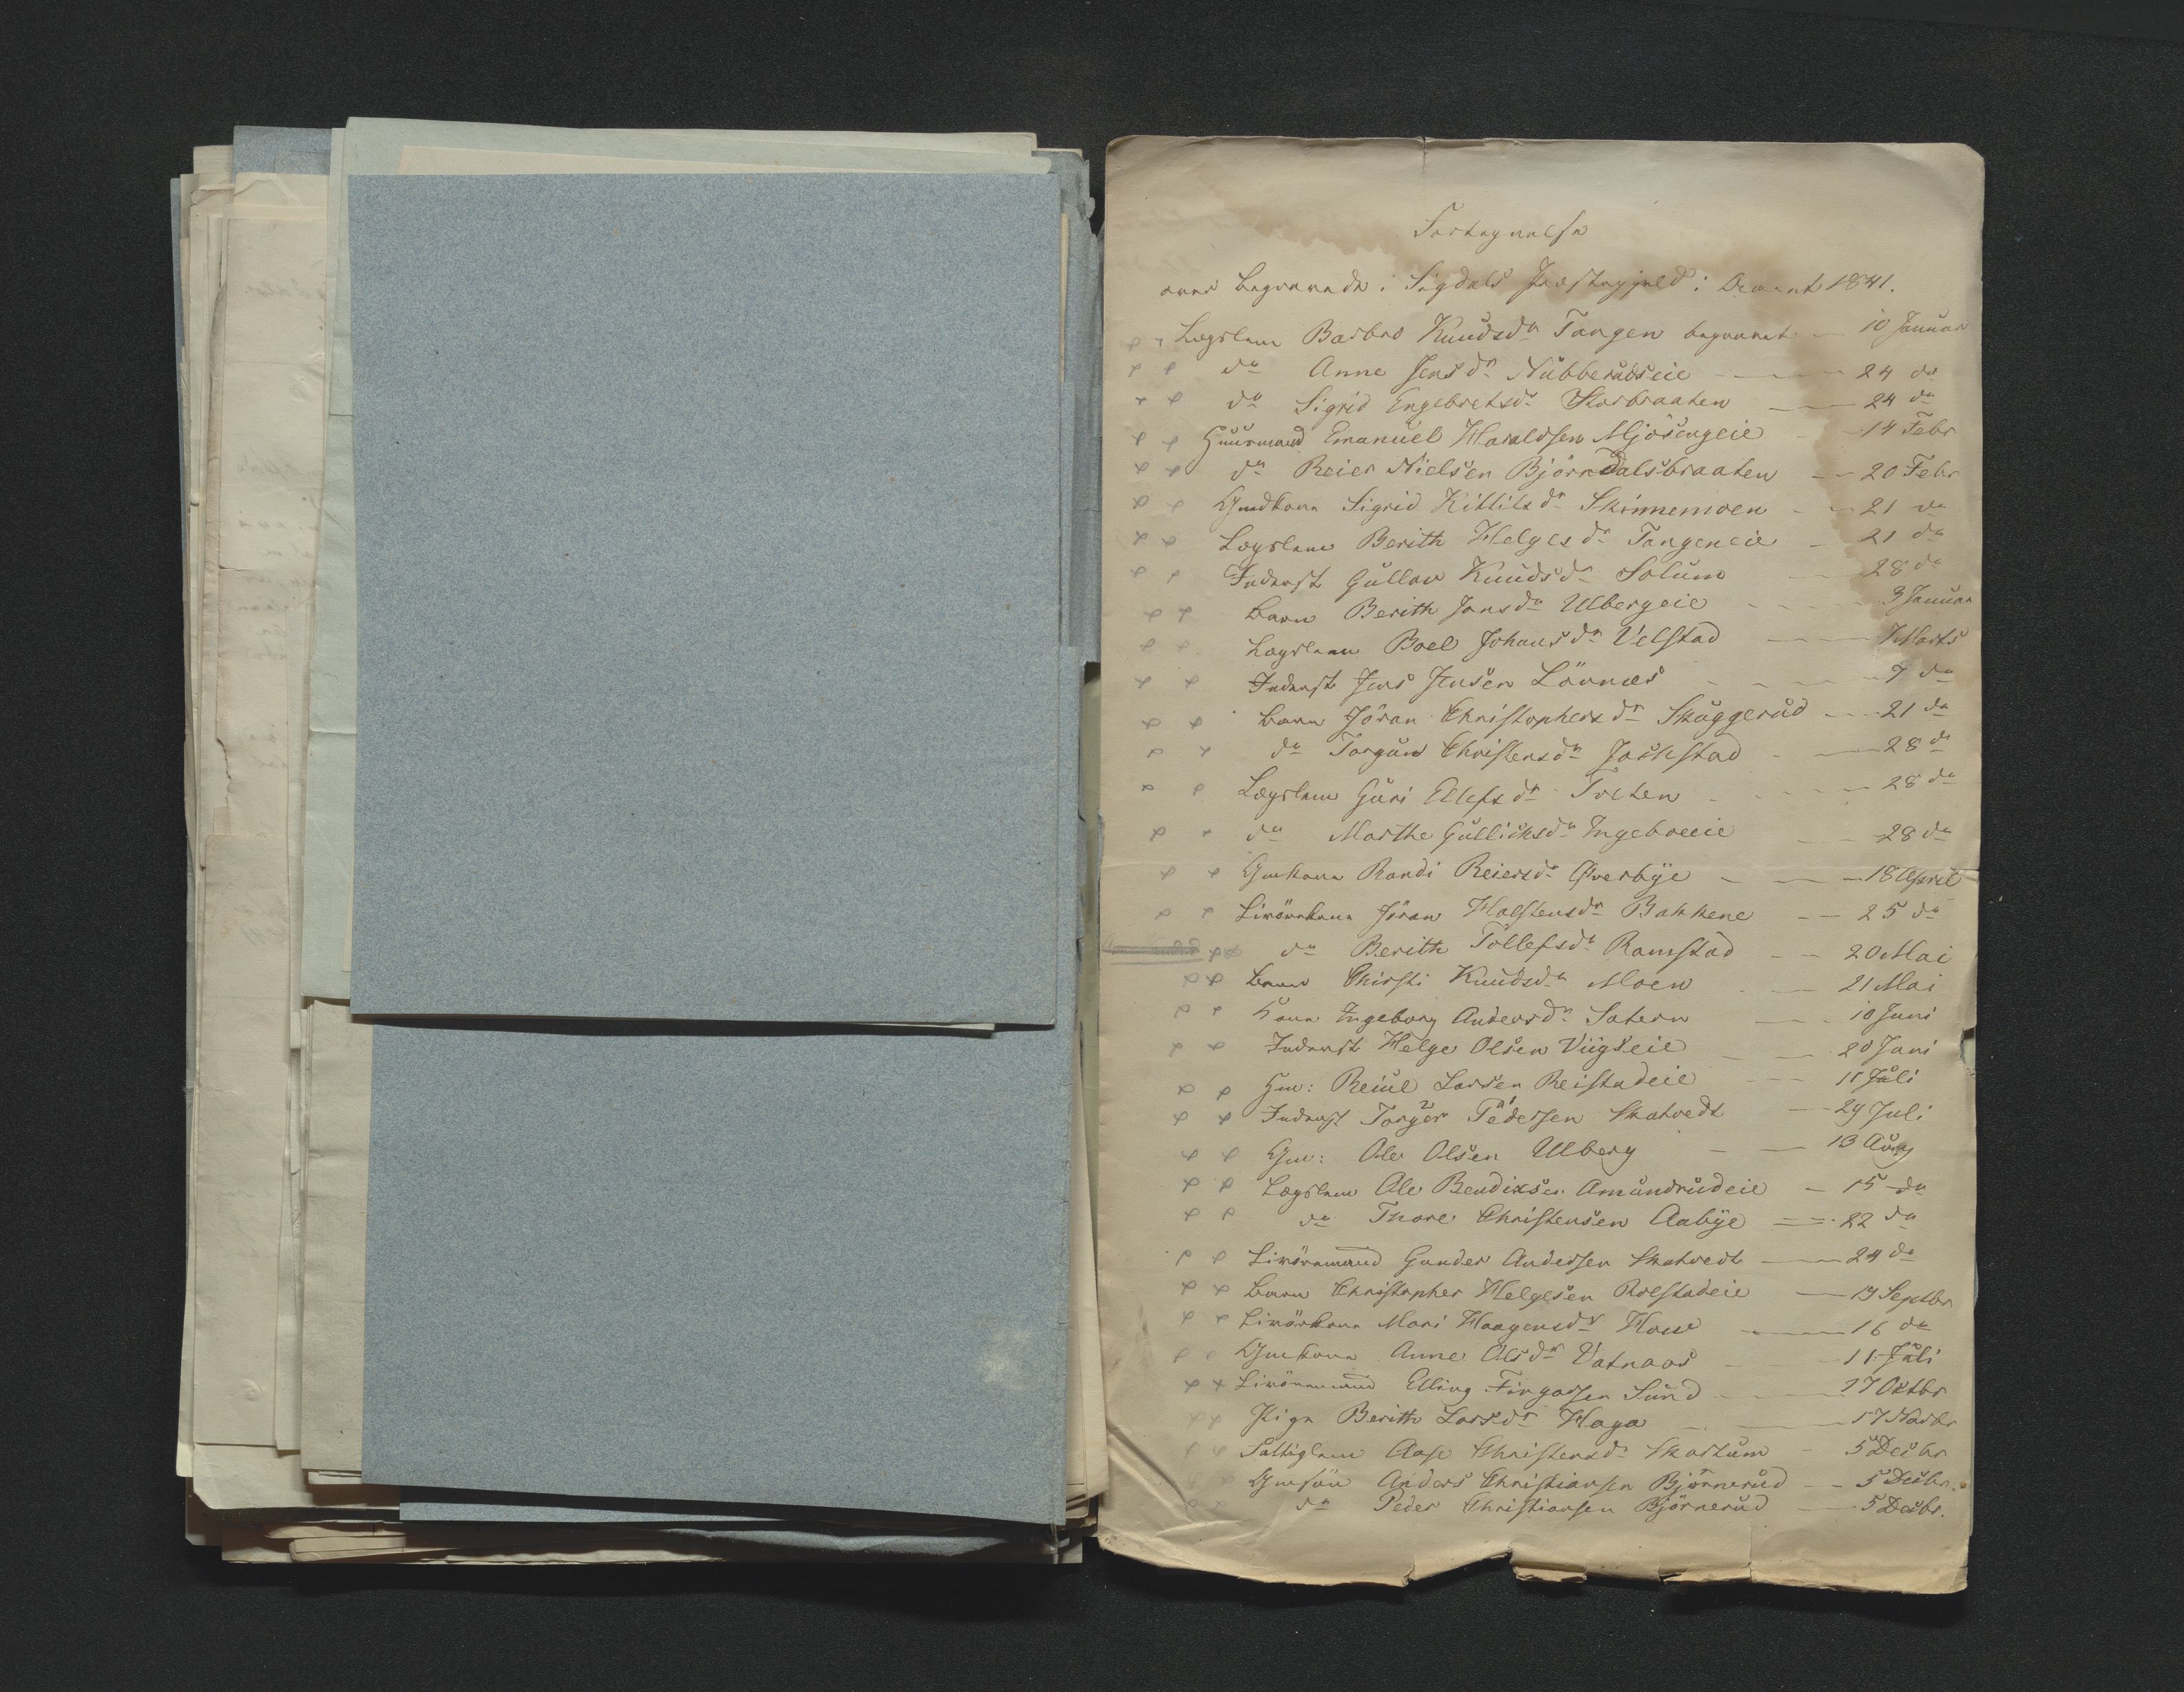 Fortegnelse
over Begravede i Sigdals Præstegjeld i Aaret 1841.
Lægslem Barbro Knudsdr Tangen begravet — 10 Januar
do Anne Jensdr Nubberudseie — 24 do
do Sigrid Engebretsdr Skarbraaten — 24 do
Huusmand Emanuel Haraldsen Mjösengeie — 14 Febr
do Reier Nielsen Björndalsbraaten — 20 Febr
Gmdkone Sigrid Kittilsdr Skinnemoen — 21 do
Lægslem Berith Helgesdr Tangeneie — 21 do
Inderst Gullov Knudsdr Solum — 28 do
Barn Berith Jonsdr Ulbergeie — 3 Januar
Lægslem Boel Johansdr Velstad — 7 Marts
Inderst Jens Jensen Lövnæs — 7 do
Barn Jöran Christophersdr Skuggerud — 21 do
do Torgun Christensdr Jockstad — 28 do
Lægslem Guri Ellefsdr Tveten — 28 do
do Marthe Gulliksdr Ingeboeeie — 28 do
Gmkone Randi Reiersdr Øverbye — 18 April
Livörekone Jöran Halstensdr Bakkene — 25 do
do Berith Tollefsdr Ramstad — 20 Mai
Barn Christi Knudsdr Moen — 21 Mai
Kone Ingeborg Andersdr Satern — 10 Juni
Inderst Helge Olsen Viigseie — 20 Juni
Hm: Reiul Larsen Reistadeie — 11 Juli
Inderst Torger Pedersen Skatvedt — 29 Juli
Gm: Ole Olsen Ulberg — 13 Aug
Lægslem Ole Bendixsen Amundrudeie — 15 do
do Thore Christensen Aabye — 22 do
Livöremand Gunder Andersen Skatvedt — 24 do
Barn Christopher Helgesen Roestadeie — 19 Septbr
Livörkone Mari Haagensdr Hove — 16 do
Gmkone Anne Olsdr Vatnaas — 11 Juli
Livöremand Elling Fingarsen Sund — 17 Oktbr
Pige Berith Larsdr Haga — 17 Novbr
Fattiglem Aase Christensdr Skartum — 5 Decbr
Gmsön Anders Christiansen Björnerud — 5 Decbr.
do Peder Christiansen Björnerud — 5 Decbr.